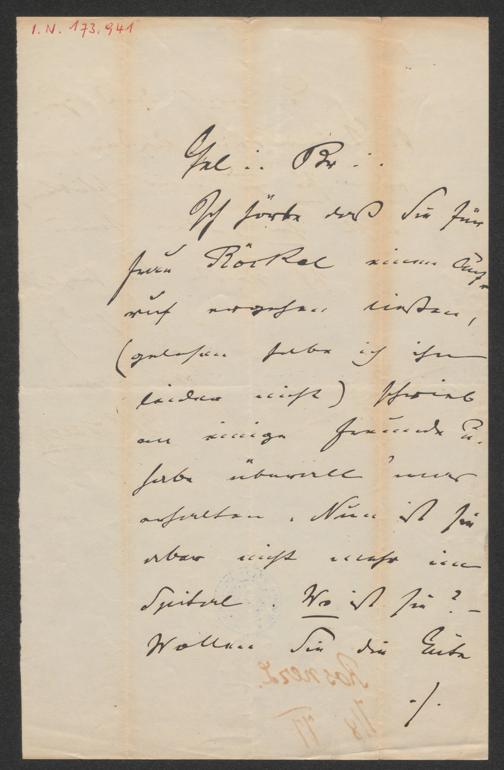 I. N. 173.941
Gel ∴ Br ∴
Ich hörte daß Sie für
Frau Röckel einen Auf-
ruf ergehen ließen,
(gelesen habe ich ihn
leider nicht) schrieb
an einige Freunde u.
habe überall
erhalten. Nun ist sie
aber nicht mehr im
Spital. Wo ist sie? –
Wollen Sie die Güte
./.
Rosner L.